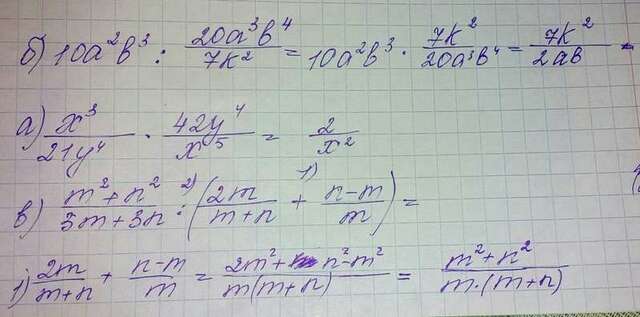 б) 10a²b³ : 20a³b⁴/7k² = 10a²b³ · 7k²/20a³b⁴ = 7k²/2ab =
а) x³/21y⁴ · 42y⁴/x⁵ = 2/x²
в) m²+n²/3m+3n :²⁾ (2m/m+n +¹⁾ n-m/m) =
1) 2m/m+n + n-m/m = 2m²+n²-m²/m(m+n) = m²+n²/m·(m+n)